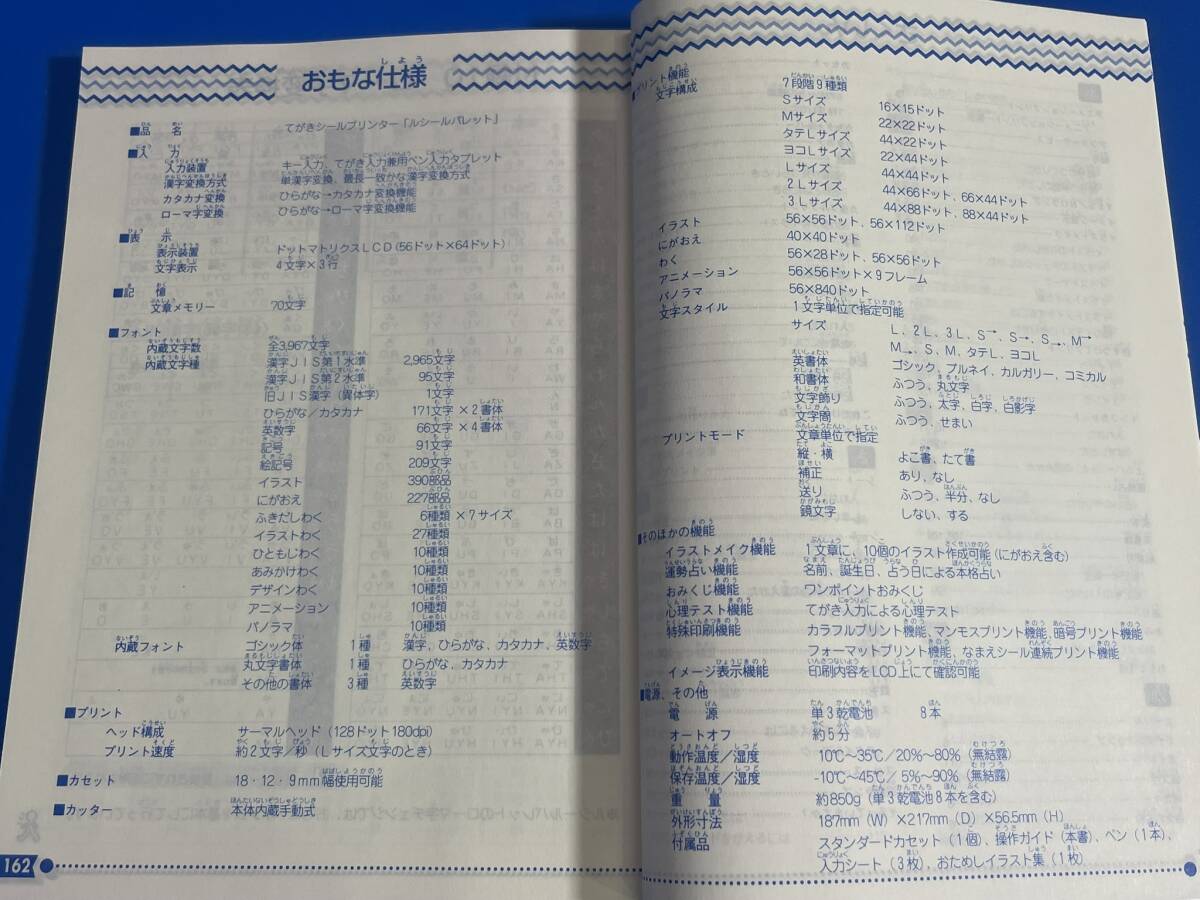 おもな仕様
■品名 てがきシールプリンター「ルシールパレット」
■入力
入力装置 キー入力、てがき入力兼用ペン入力タブレット
漢字変換方式 単漢字変換、最長一致かな漢字変換方式
カタカナ変換 ひらがな→カタカナ変換機能
ローマ字変換 ひらがな→ローマ字変換機能
■表示
表示装置 ドットマトリクスLCD(56ドット×64ドット)
文字表示 4文字×3行
■記憶
文章メモリー 70文字
■フォント
内蔵文字数 全3,967文字
内蔵文字種 漢字JIS第1水準 2,965文字
漢字JIS第2水準 95文字
旧JIS漢字(異体字) 1文字
ひらがな/カタカナ 171文字×2書体
英数字 66文字×4書体
記号 91文字
絵記号 209文字
イラスト 390部品
にがおえ 227部品
ふきだしわく 6種類×7サイズ
イラストわく 27種類
ひともじわく 10種類
あみかけわく 10種類
デザインわく 10種類
アニメーション 10種類
パノラマ 10種類
内蔵フォント ゴシック体 1種 漢字、ひらがな、カタカナ、英数字
丸文字書体 1種 ひらがな、カタカナ
その他の書体 3種 英数字
■プリント
ヘッド構成 サーマルヘッド(128ドット180dpi)
プリント速度 約2文字/秒(Lサイズ文字のとき)
■カセット 18・12・9mm幅使用可能
■カッター 本体内蔵手動式
162
■プリント機能
文字構成 7段階9種類
Sサイズ 16×15ドット
Mサイズ 22×22ドット
タテLサイズ 44×22ドット
ヨコLサイズ 22×44ドット
Lサイズ 44×44ドット
2Lサイズ 44×66ドット、66×44ドット
3Lサイズ 44×88ドット、88×44ドット
イラスト 56×56ドット、56×112ドット
にがおえ 40×40ドット
わく 56×28ドット、56×56ドット
アニメーション 56×56ドット×9フレーム
パノラマ 56×840ドット
文字スタイル 1文字単位で指定可能
サイズ L、2L、3L、S→、S→、S→、M→
M→、S、M、タテL、ヨコL
英書体 ゴシック、ブルネイ、カルガリー、コミカル
和書体 ふつう、丸文字
文字飾り ふつう、太字、白字、白影字
文字間 ふつう、せまい
プリントモード 文章単位で指定
縦・横 よこ書、たて書
補正 あり、なし
送り ふつう、半分、なし
鏡文字 しない、する
■そのほかの機能
イラストメイク機能 1文章に、10個のイラスト作成可能(にがおえ含む)
運勢占い機能 名前、誕生日、占う日による本格占い
おみくじ機能 ワンポイントおみくじ
心理テスト機能 てがき入力による心理テスト
特殊印刷機能 カラフルプリント機能、マンモスプリント機能、暗号プリント機能
フォーマットプリント機能、なまえシール連続プリント機能
イメージ表示機能 印刷内容をLCD上にて確認可能
■電源、その他
電源 単3乾電池 8本
オートオフ 約5分
動作温度/湿度 10℃〜35℃/20%〜80%(無結露)
保存温度/湿度 -10℃〜45℃/5%〜90%(無結露)
重量 約850g(単3乾電池8本を含む)
外形寸法 187mm(W)×217mm(D)×56.5mm(H)
付属品 スタンダードカセット(1個)、操作ガイド(本書)、ペン(1本)、
入力シート(3枚)、おためしイラスト集(1枚)